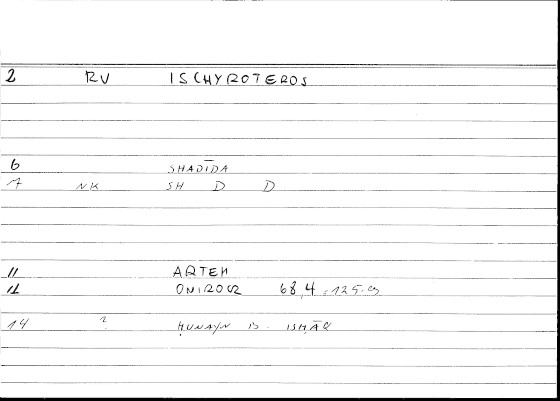 2 RV ISCHYROTEROS
6 SHADĪDA
7 NK SH D D
11 ARTEM
12 ONIROCR 68,4 = 125.9
14 ? ḤUNAYN B. ISḤĀQ